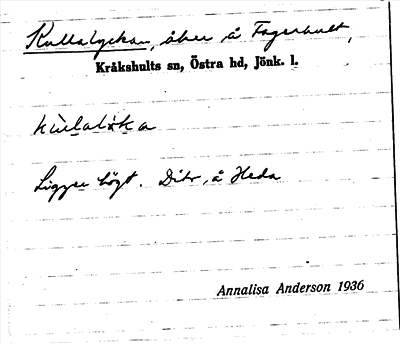 Kullalyckan, åker å Fagerhult,
Kråkshults sn, Östra hd, Jönk. l.
Ligger högt. Dito, å Heda
Annalisa Anderson 1936